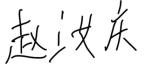 赵汝庆